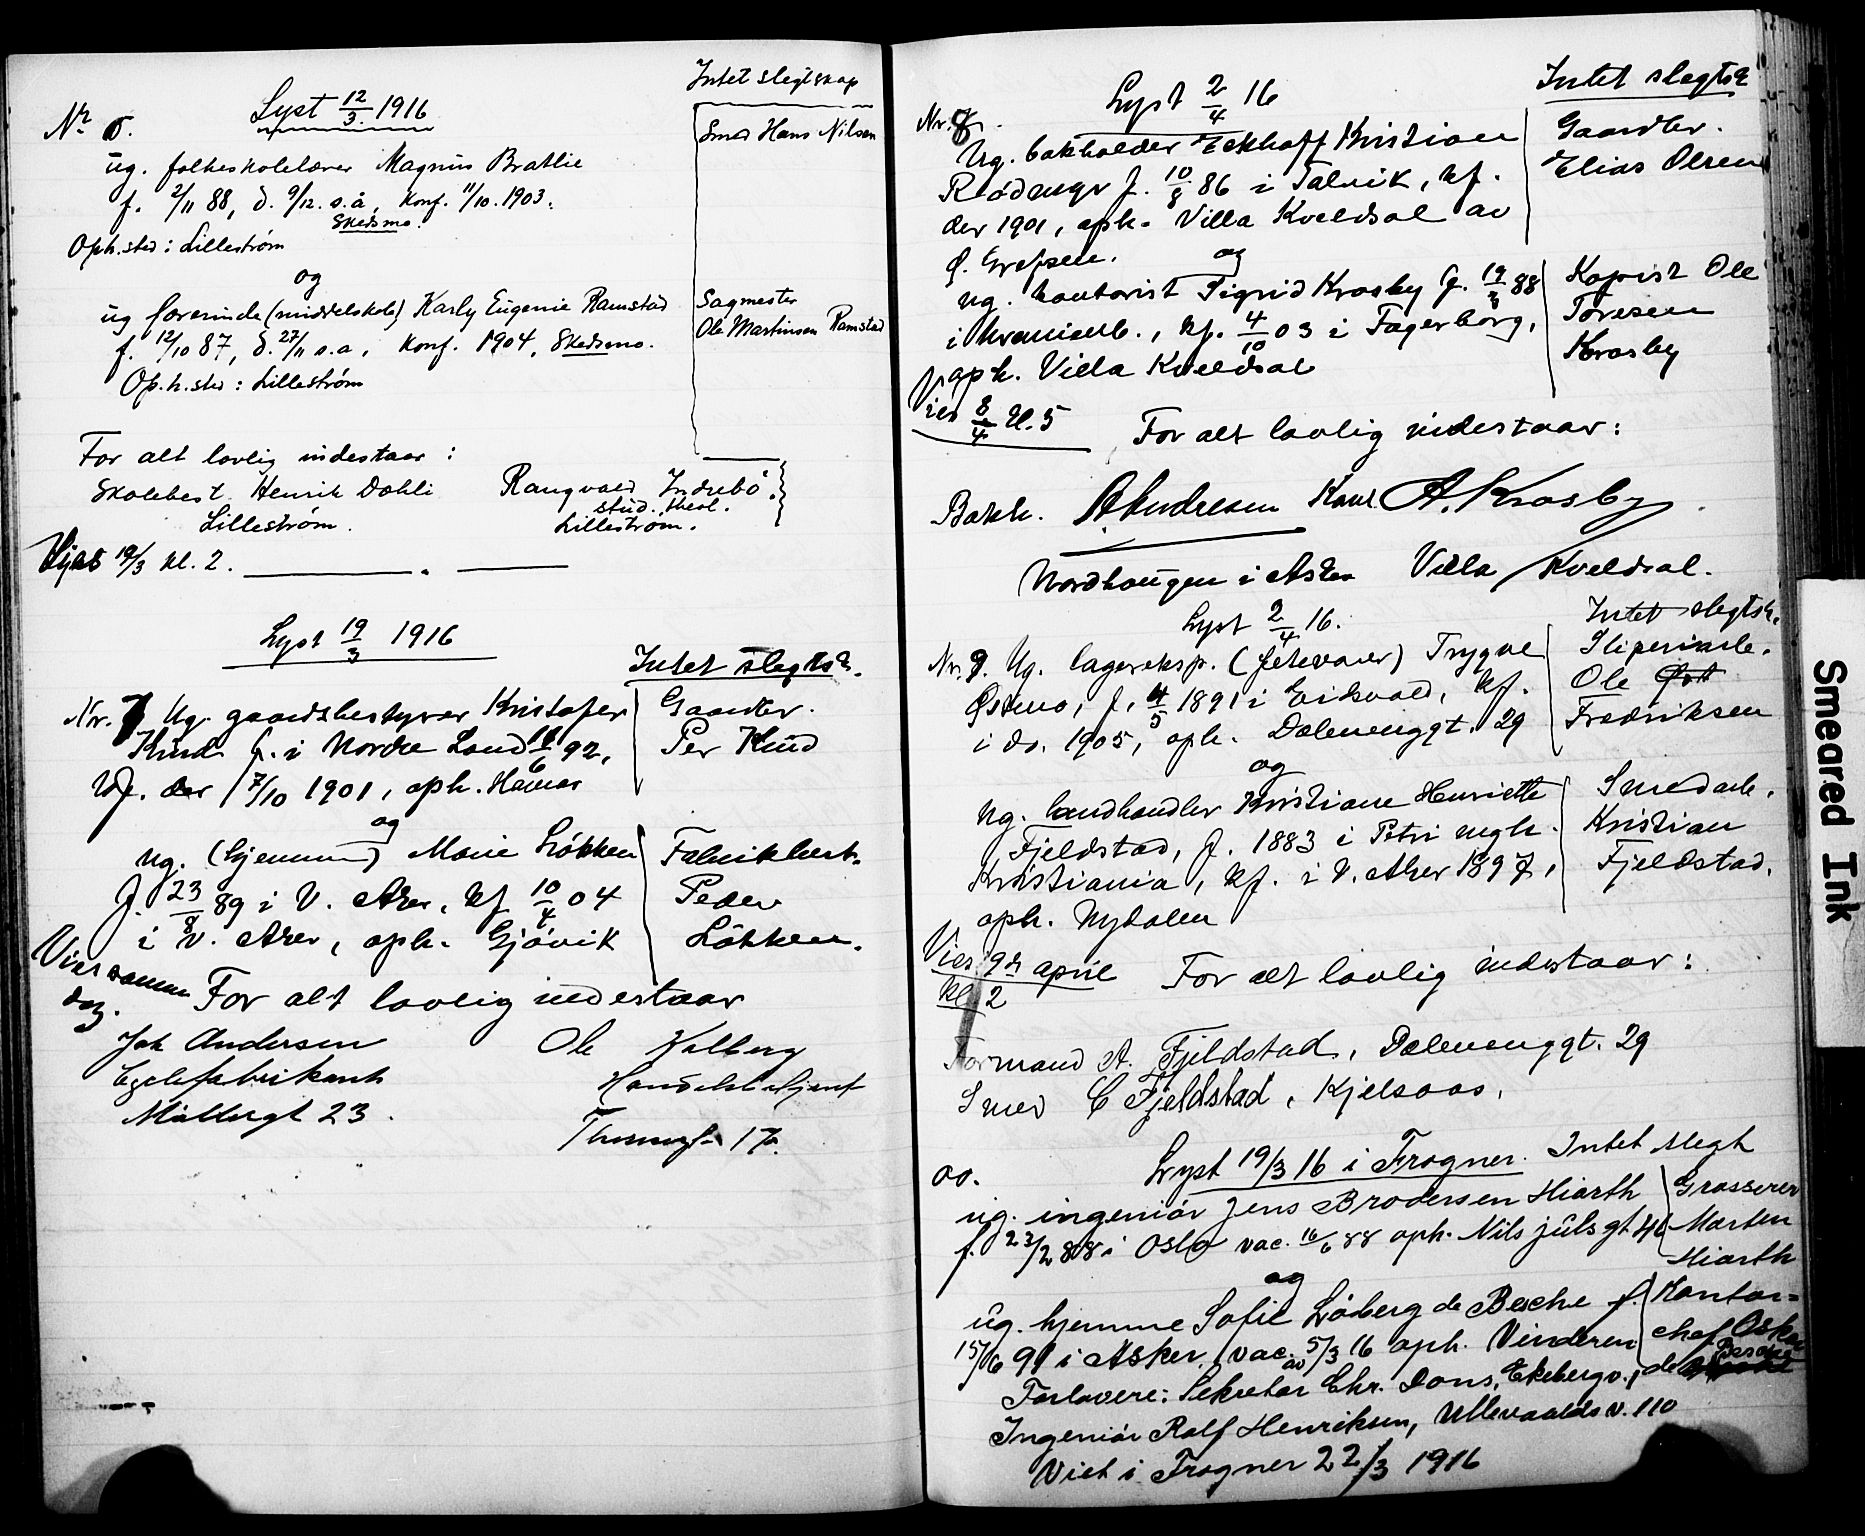 Intet slegtskap
Lyst 12/3 1916
Nr 6.
ug. folkeskolelærer Magnus Bratlie
Smed Hans Nilsen
f. 2/11 88, d. 9/12. s.å, Konf. 11/10. 1903.
Skedsmo.
Oph.sted: Lillestrøm
og
ug lærerinde (middelskole) Karly Eugenie Ramstad
Sagmester
Ole Martinsen Ramstad
f. 12/10 87, d. 27/11 s.a, Konf. 1904, Skedsmo.
Op.h.sted: Lillestrøm
For alt lovlig indestaar:
Skolebest. Henrik Dahli
Lillestrøm.
Rangvald Indrebö.
stud. theol.
Lillestrøm.
Vies 19/3 kl. 2.
Lyst 19/3 1916
Intet slegtsk.
Nr. 7 Ug. gaardsbestyrer Kristofer
Gaardbr.
Kind f. i Nordre Land 18/6 92,
Per Kind
kf. der 7/10 1901, oph. Hamar
og
ug. (hjemme) Marie Løkken
Fabrikbest.
f. 23/8 89 i V. Aker, kf 10/4 04
Peder
i V. Aker, oph. Gjøvik
Løkken.
Vies samme
dag.
For alt lovlig indestaar
Joh Andersen
Cyclefabrikant
Møllergt 23.
Ole Kalberg
Handelsbetjent
17
Lyst 2/4 16
Intet slegtsk
Nr. 8.
Ug. bokholder Ekhoff Kristian
Gaardbr.
Elias Olsen
f. 10/8 86 i Talvik, kf.
der 1901, oph. Villa Kveldsol av
Ø. Grefsen.
og
ug. kontorist Sigrid Krosby f. 19/3 88
Kopist Ole
i kf. 4/10 03 i Fagerborg,
Toresen
oph. Villa Kveldsol
Krosby
Vies 8/4 kl. 5
For alt lovlig indestaar:
Bokh. A Andresen
A. Krosby
Nordhaugen i Asker
Villa Kveldsol.
Lyst 2/4 16.
Intet slegtsk.
Nr. 9. Ug. lagereksp. (fetevarer) Trygve
Sliperiarb.
Østmo, f. 4/5 1891 i Eidsvold, kf.
Ole
i do. 1905, oph. Dælenenggt. 29
Fredriksen
og
ug. landhandler Kristiane Henriette
Smedarb.
Fjeldstad, f. 1883 i Petri mgh.
Kristian
Kristiania, kf. i V. Aker 1897,
Fjeldstad.
oph. Nydalen
Vies 9de april
kl. 2
For alt lovlig indestaar:
Formand A. Fjeldstad, Dælenenggt. 29
Smed C Fjeldstad, Kjelsaas,
00.
Lyst 19/3 16 i Frogner.
Intet slegt
ug. ingeniør Jens Brodersen Hiorth
Grosserer
f. 23/2 88 i Oslo vac. 16/6 88 oph. Nils juls gt 46
Morten
Hiorth
og
ug. hjemme Sofie Løberg de Besche f.
Kontor=
15/6 91 i Asker, vac. 5/3 16 oph. Vinderen
chef Oskar
av
de Besche
Forlovere: Sekretær Chr. Dons, Ekebergv. 1
Ingeniør Rolf Henriksen, Ullevaaldsv. 110
Viet i Frogner 22/3 1916
Smeared Ink